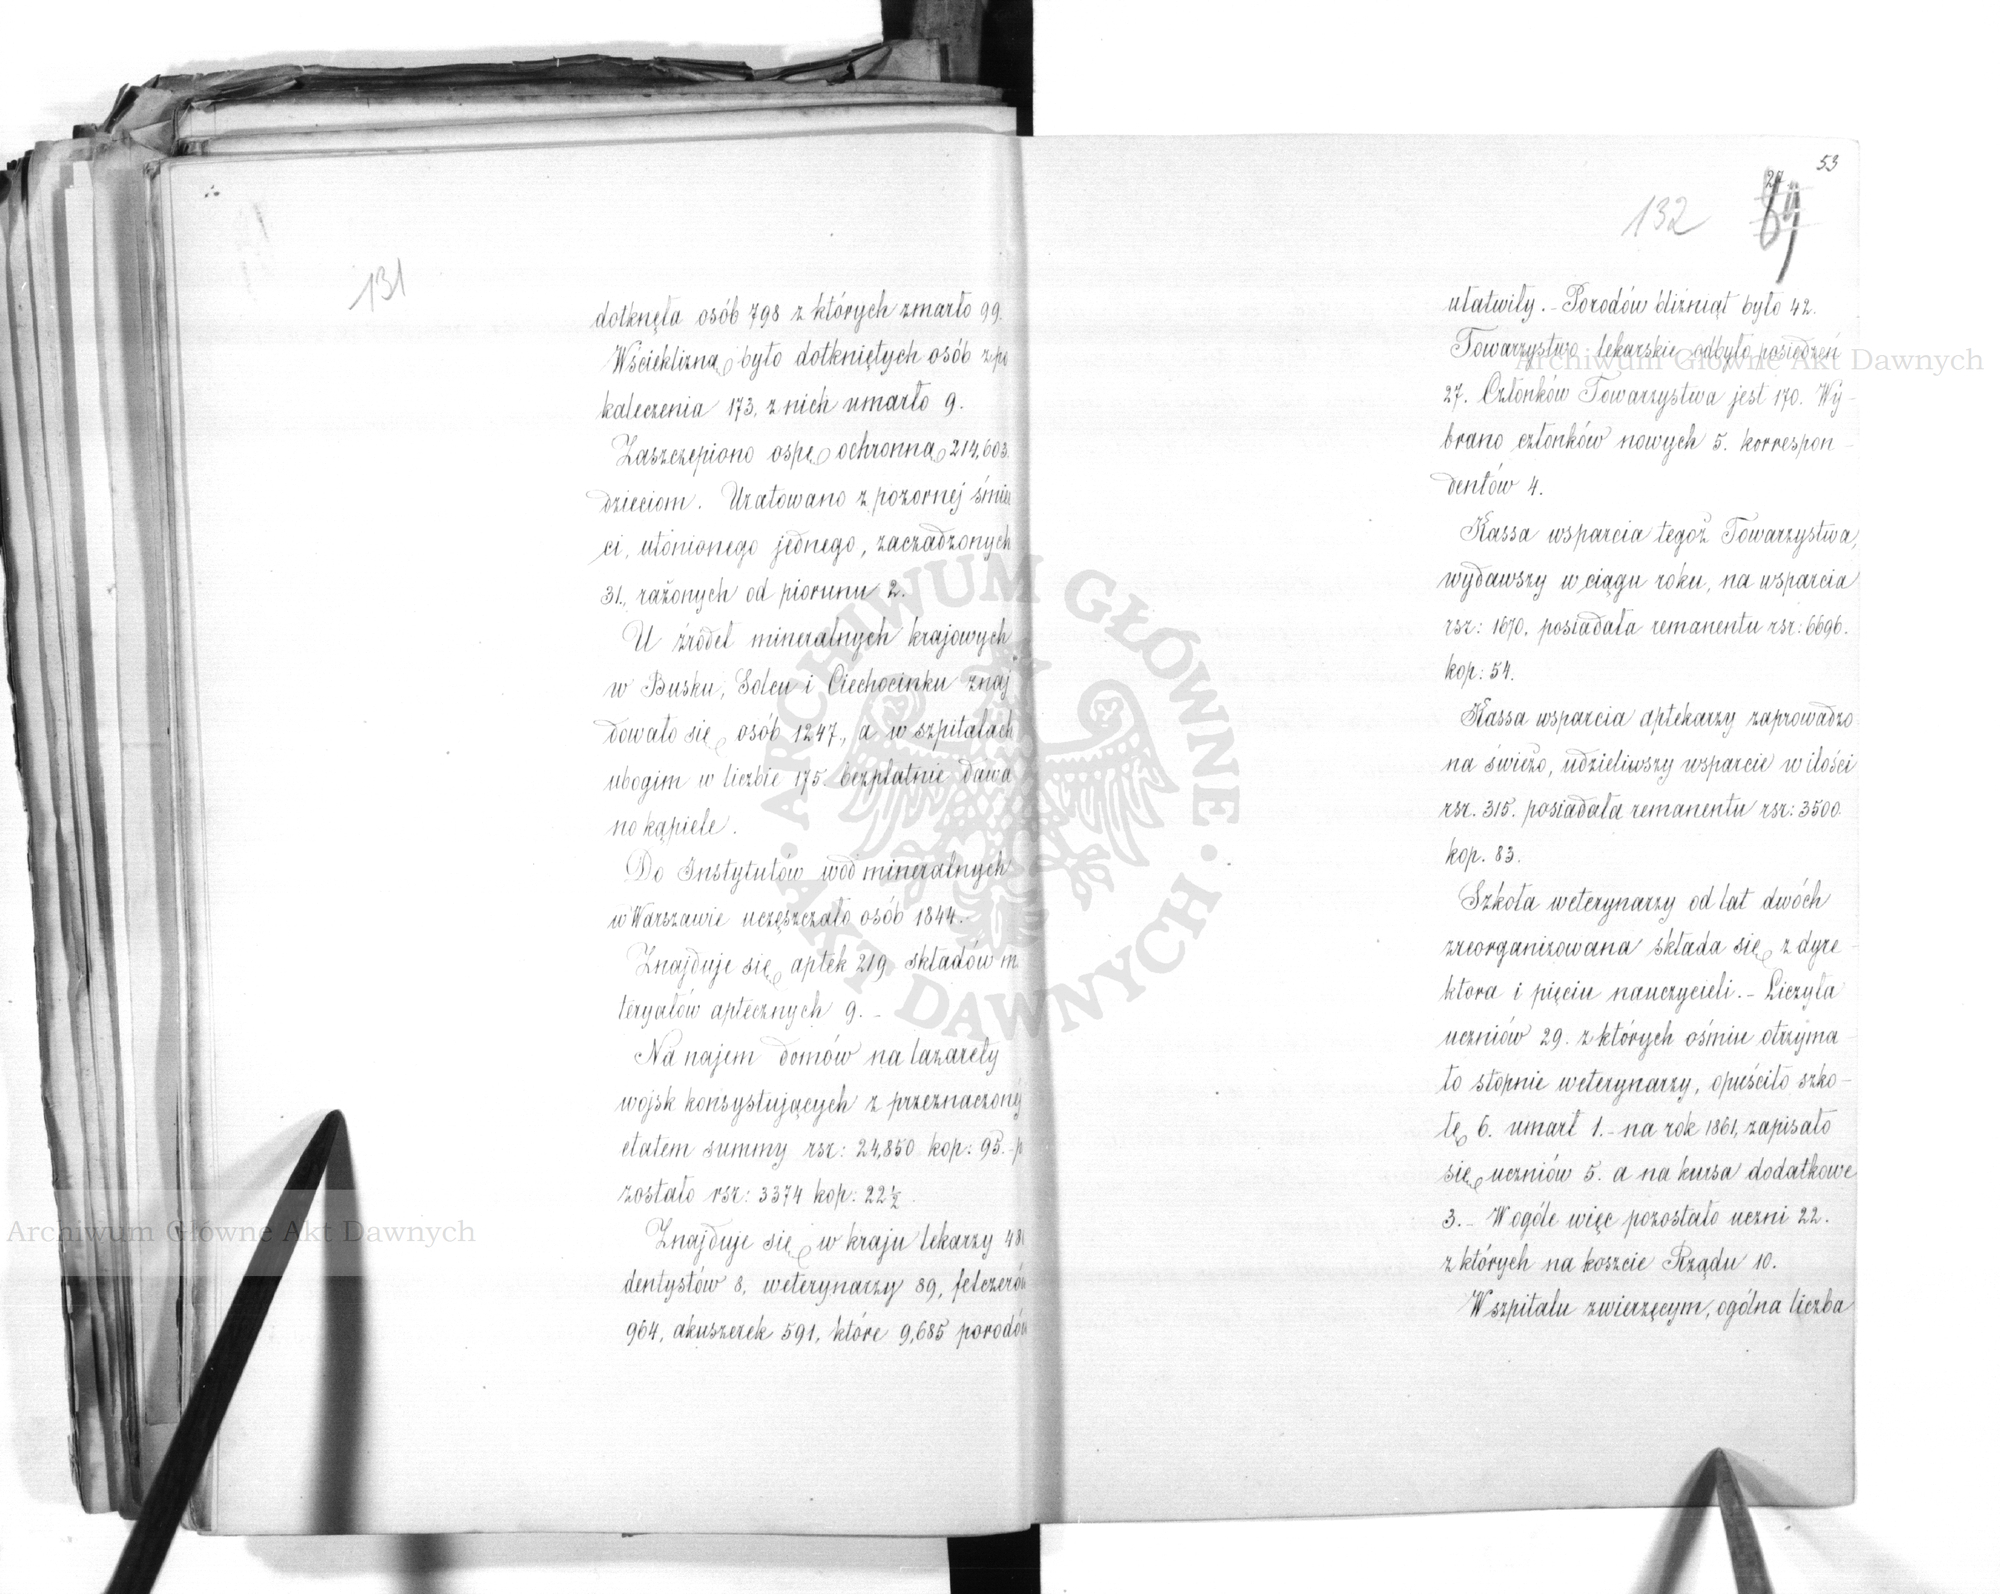 131
dotknęła osób 798 z których zmarło 99.
Wścieklizną było dotkniętych osób z po
kaleczenia 173, z nich umarło 9.
Zaszczepiono ospę ochronną 214,603.
dzieciom. Uratowano z pozornej śmier
ci, utonionego jednego, zaczadzonych
31., rażonych od piorunu 2.
U źródeł mineralnych krajowych
w Busku, Solcu i Ciechocinku znaj
dowało się osób 1247., a w szpitalach
ubogim w liczbie 175. bezpłatnie dawa
no kąpiele.
Do Instytutów wód mineralnych
w Warszawie uczęszczało osób 1844.-
Znajduje się aptek 219 składów m
teryałów aptecznych 9.-
Na najem domów na lazarety
wojsk konsystujących z przeznaczonéj
etatem summy rsr: 24,850 kop: 95.- p
zostało rsr: 3374 kop: 22½.
Znajduje się w kraju lekarzy
dentystów 8, weterynarzy 89, felczerów
964, akuszerek 591, które 9,685 porodów
53
27
132
ułatwiły.- Porodów bliźniąt było 42.
Towarzystwo lekarskie odbyło posiedzeń
27. Członków Towarzystwa jest 170. Wy-
brano członków nowych 5. korrespon-
dentów 4.
Kassa wsparcia tegoż Towarzystwa,
wydawszy w ciągu roku, na wsparcia
rsr: 1670. posiadała remanentu rsr: 6696.
kop: 54.
Kassa wsparcia aptekarzy zaprowadzo
na świeżo, udzieliwszy wsparcie w ilości
rsr. 315. posiadała remanentu rsr: 3500.
kop. 83.
Szkoła weterynarzy od lat dwóch
zreorganizowana składa się z dyre-
ktora i pięciu nauczycieli.- Liczyła
uczniów 29. z których ośmiu otrzyma-
ło stopnie weterynarzy, opuściło szko-
łę 6. umarł 1.- na rok 1861, zapisało
się uczniów 5. a na kursa dodatkowe
3.- W ogóle więc pozostało uczni 22.
z których na koszcie Rządu 10.
W szpitalu zwierzęcym, ogólna liczba
Archiwum Główne Akt Dawnych
Archiwum Główne Akt Dawnych
ARCHIWUM GŁÓWNE · AKT DAWNYCH ·